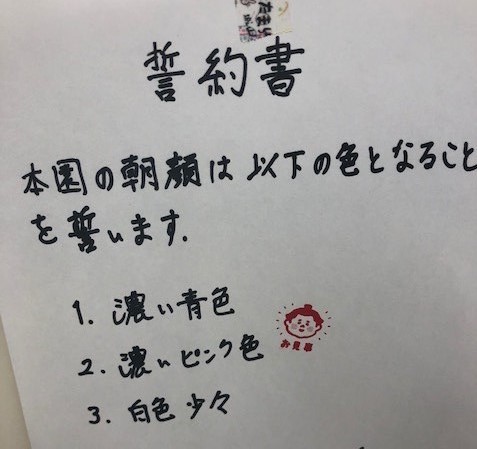 誓約書
本園の朝顔は以下の色となること
を誓います.
1. 濃い青色
2. 濃いピンク色
お見事
3. 白色 少々